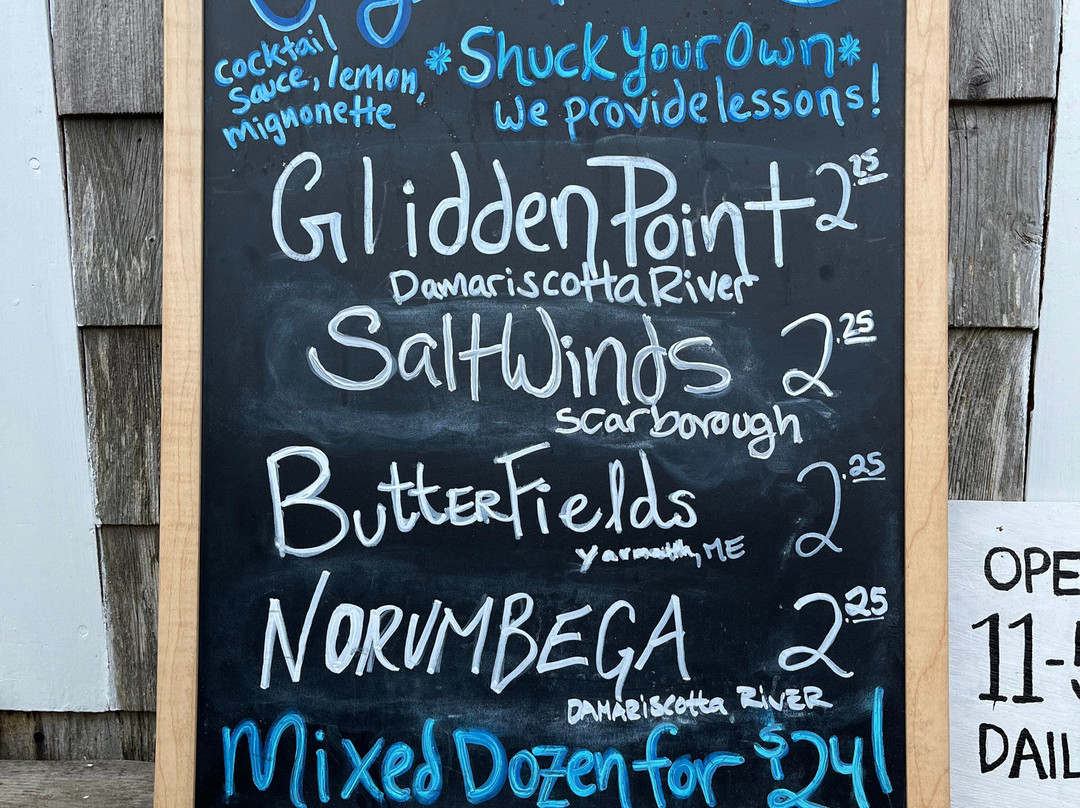 cocktail
sauce, lemon,
mignonette
*Shuck Your Own*
we provide lessons!
Glidden Point 2.25
Damariscotta River
Salt Winds 2.25
Scarborough
Butterfields 2.25
Yarmouth, ME
NORUMBEGA 2.25
DAMARiscotta RiVER
Mixed Dozen for $24!
OPE
11-5
DAIL